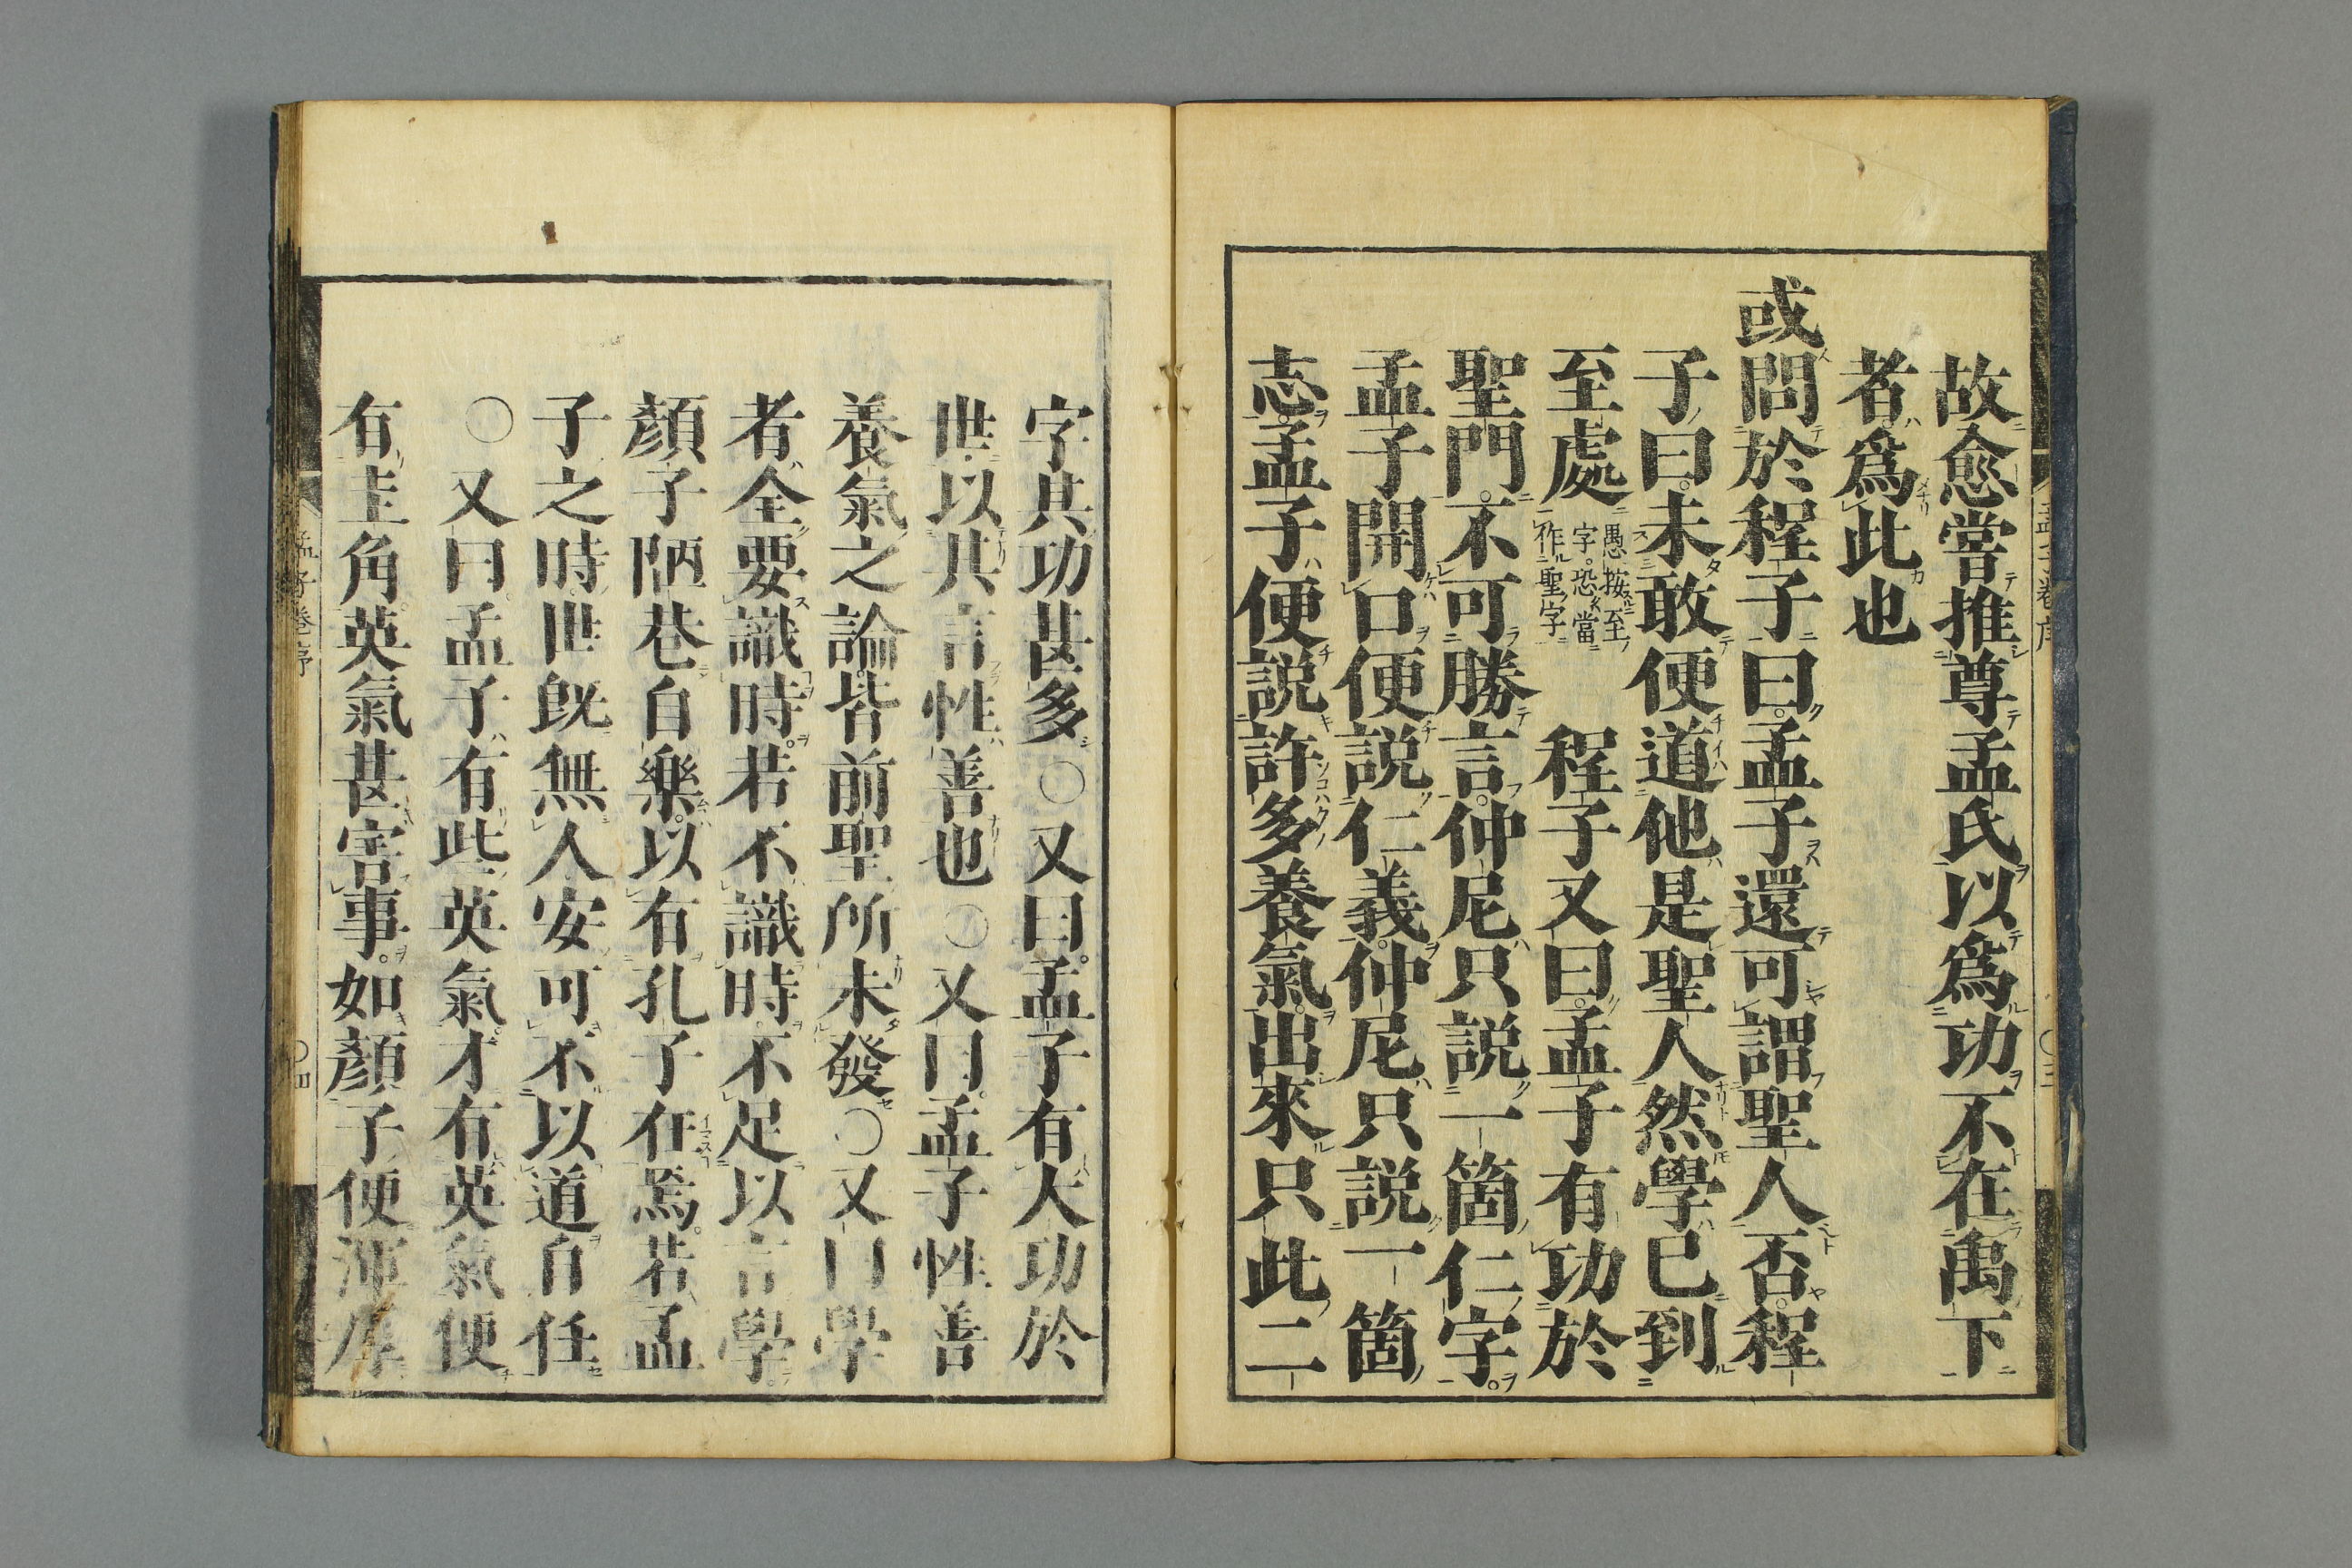 故愈嘗推尊孟氏以爲功不在禹下
者爲此也
或問於程子曰孟子還可謂聖人否程
子曰未敢便道他是聖人然學已到
至處愚按至字恐當作聖字程子又曰孟子有功於
聖門不可勝言仲尼只説一箇仁字
孟子開口便説仁義仲尼只説一箇
志孟子便説許多養氣出來只此二
字其功甚多〇又曰孟子有大功於
世以其言性善也〇又曰孟子性善
養氣之論皆前聖所未發〇又曰學
者全要識時若不識時不足以言學
顏子陋巷自樂以有孔子在焉若孟
子之時世既無人安可不以道自任
〇又曰孟子有些英氣才有英氣便
有圭角英氣甚害事如顏子便渾厚